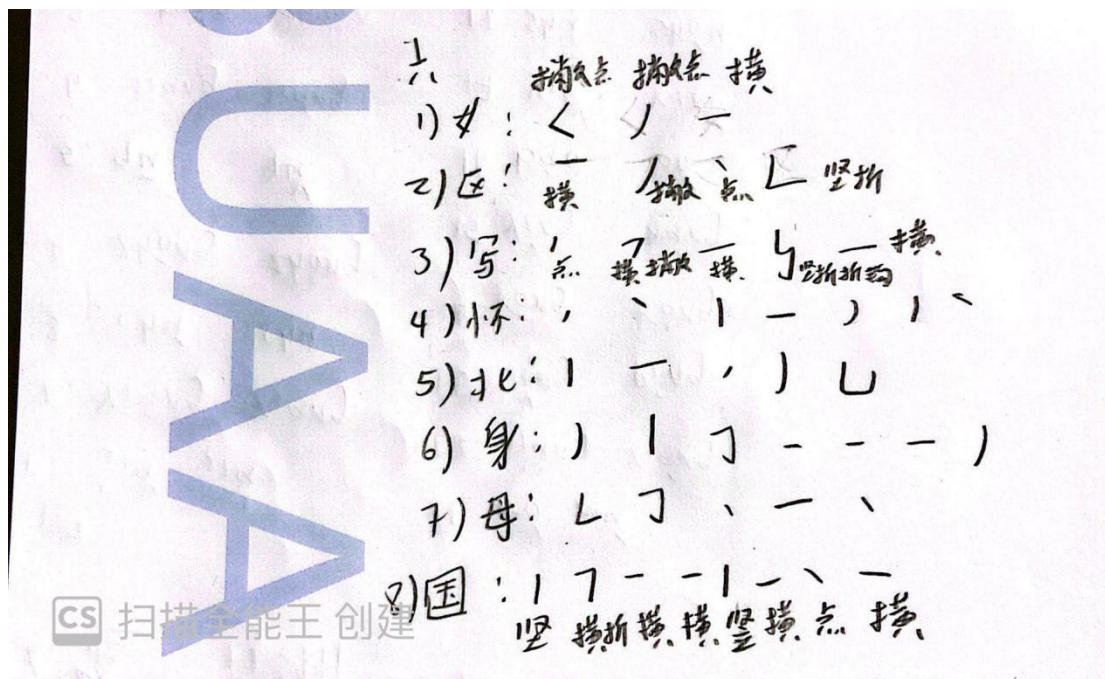 BUAA
六
撇点 撇点 横
1) 女: く 丿 一
2) 区: 一 丿 丶 ㄴ 竖折
横 撇 点
3) 写: 丶 乛 一 ㄣ 一 横
点 横撇 横 竖折折钩
4) 怀: 丶 丶 丨 一 丿 丨 丶
5) 北: 丨 一 ㇀ 丿 乚
6) 身: 丿 丨 ㇆ 一 一 一 丿
7) 母: ㄴ ㇆ 丶 一 丶
8) 国: 丨 ㇕ 一 一 丨 一 丶 一
竖 横折 横 横 竖 横 点 横
CS 扫描全能王 创建